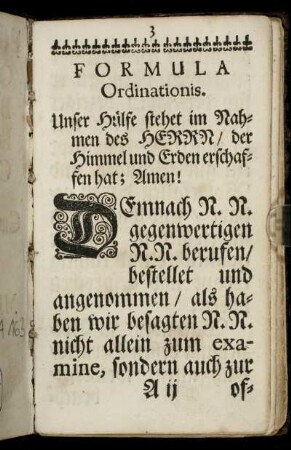 3
FORMULA
Ordinationis.
Unser Hülfe stehet im Nah-
men des HERRN/ der
Himmel und Erden erschaf-
fen hat; Amen!
DEmnach N. N.
gegenwertigen
N.N. berufen/
bestellet und
angenommen / als ha-
ben wir besagten N. N.
nicht allein zum exa-
mine, sondern auch zur
A ij of-